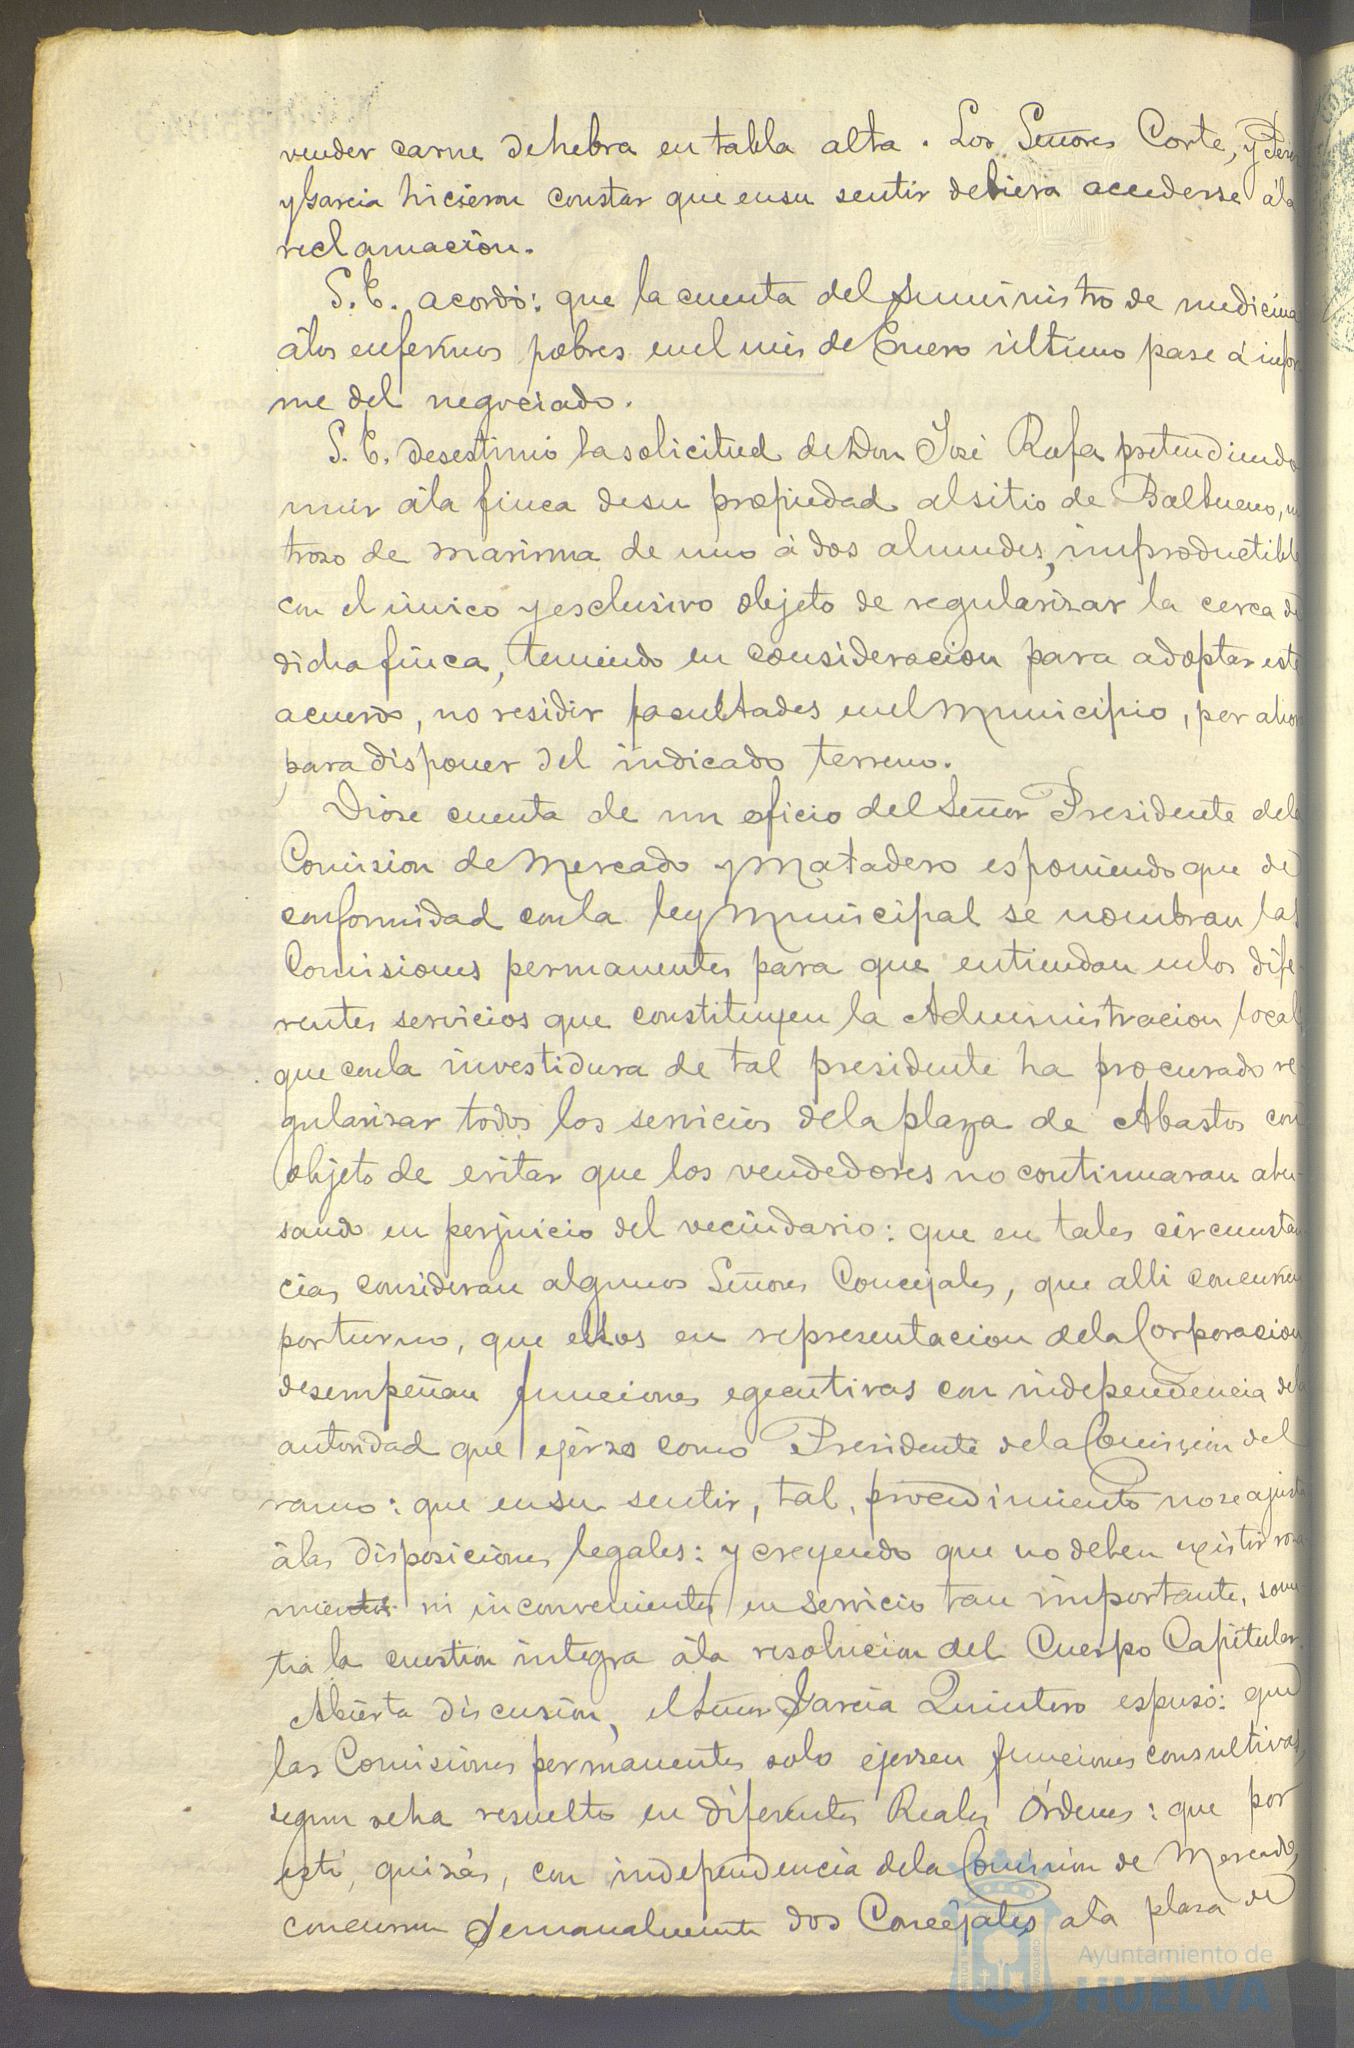 vender carne de hebra en tabla alta. Los Señores Corte, y Perez
y Garcia hicieron constar que en su sentir debiera accederse á la
reclamacion.
S. E. acordó: que la cuenta del suministro de medicina
á los enfermos pobres en el mes de Enero último pase á infor
me del negociado.
S. E. desestimó la solicitud de Don José Rofa pretendiendo
unir á la finca de su propiedad al sitio de Balbueno, un
troso de marisma de uno á dos almudes, improductible
con el único y esclusivo objeto de regularizar la cerca de
dicha finca, teniendo en consideracion para adoptar este
acuerdo, no residir facultades en el Municipio, por ahora
para disponer del indicado terreno.
Diose cuenta de un oficio del Señor Presidente de la
Comision de Mercado y Matadero esponiendo que de
conformidad con la ley Municipal se nombran las
Comisiones permanentes para que entiendan en los dife
rentes servicios que constituyen la Administracion local
que con la investidura de tal presidente ha procurado re-
gularizar todos los servicios de la plaza de Abastos con
objeto de evitar que los vendedores no continuaran abu-
sando en perjuicio del vecindario: que en tales circunstan
cias consideran algunos Señores Concejales, que alli concurren
por turno, que ellos en representacion de la Corporacion
desempeñan funciones egecutivas con independencia de la
autoridad que ejerzo como Presidente de la Comision del
ramo: que en su sentir, tal procedimiento no se ajusta
á las disposiciones legales: y creyendo que no deben existir roza
mientos ni inconvenientes en servicio tan importante, some
tia la cuestion integra á la resolucion del Cuerpo Capitular.
Abierta discusion, el Señor Garcia Quintero espuso: que
las Comisiones permanentes solo ejersen funciones consultivas,
segun se ha resuelto en diferentes Reales Órdenes: que por
esto, quizás, con independencia de la Comision de Mercado,
concurren semanalmente dos Concejales a la plaza de
Ayuntamiento de
HUELVA